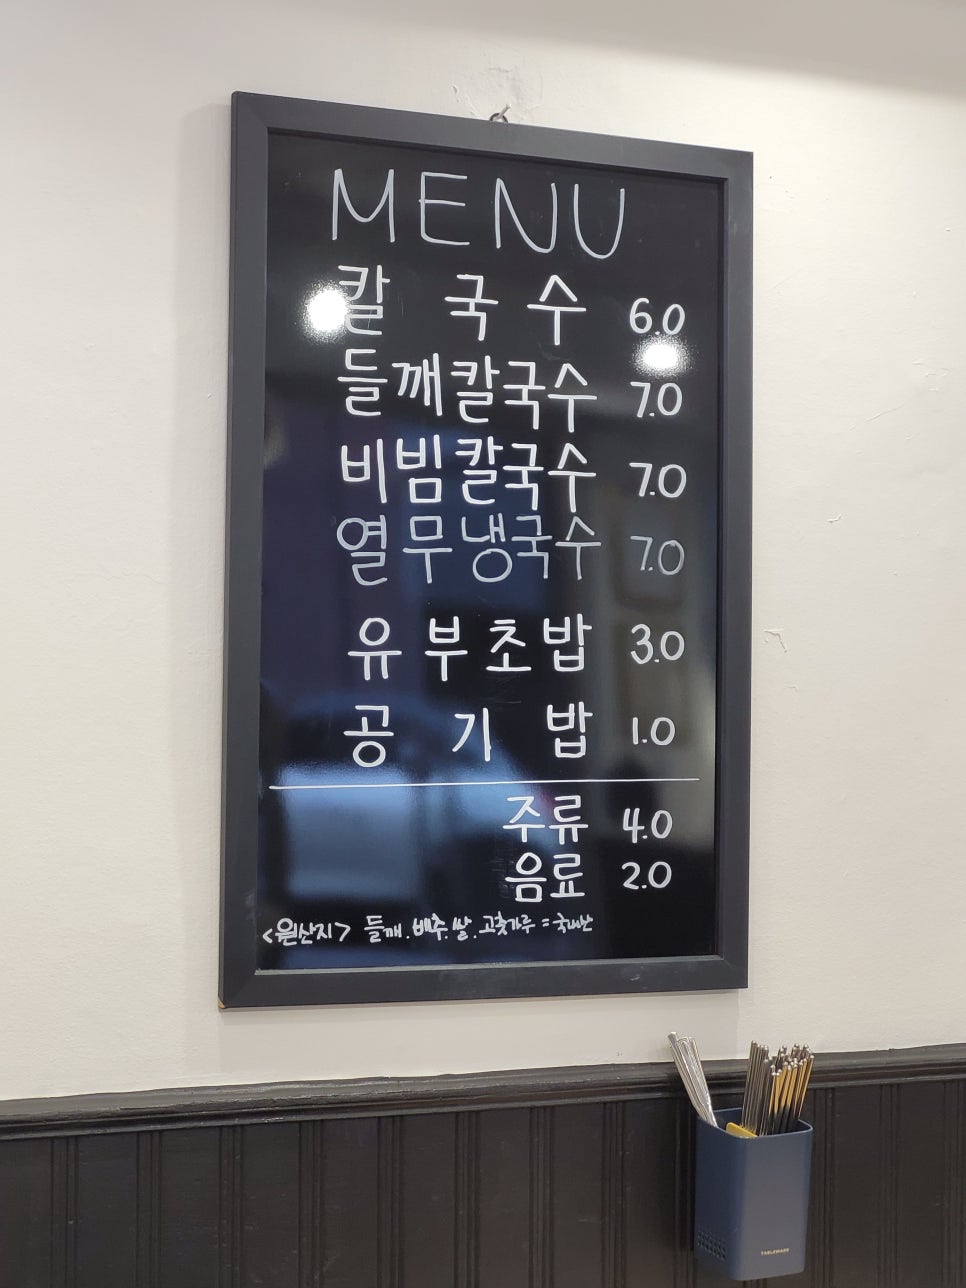 MENU
칼국수 6.0
들깨칼국수 7.0
비빔칼국수 7.0
열무냉국수 7.0
유부초밥 3.0
공기밥 1.0
주류 4.0
음료 2.0
<원산지> 들깨.배추.쌀.고춧가루=국내산
TABLEWARE